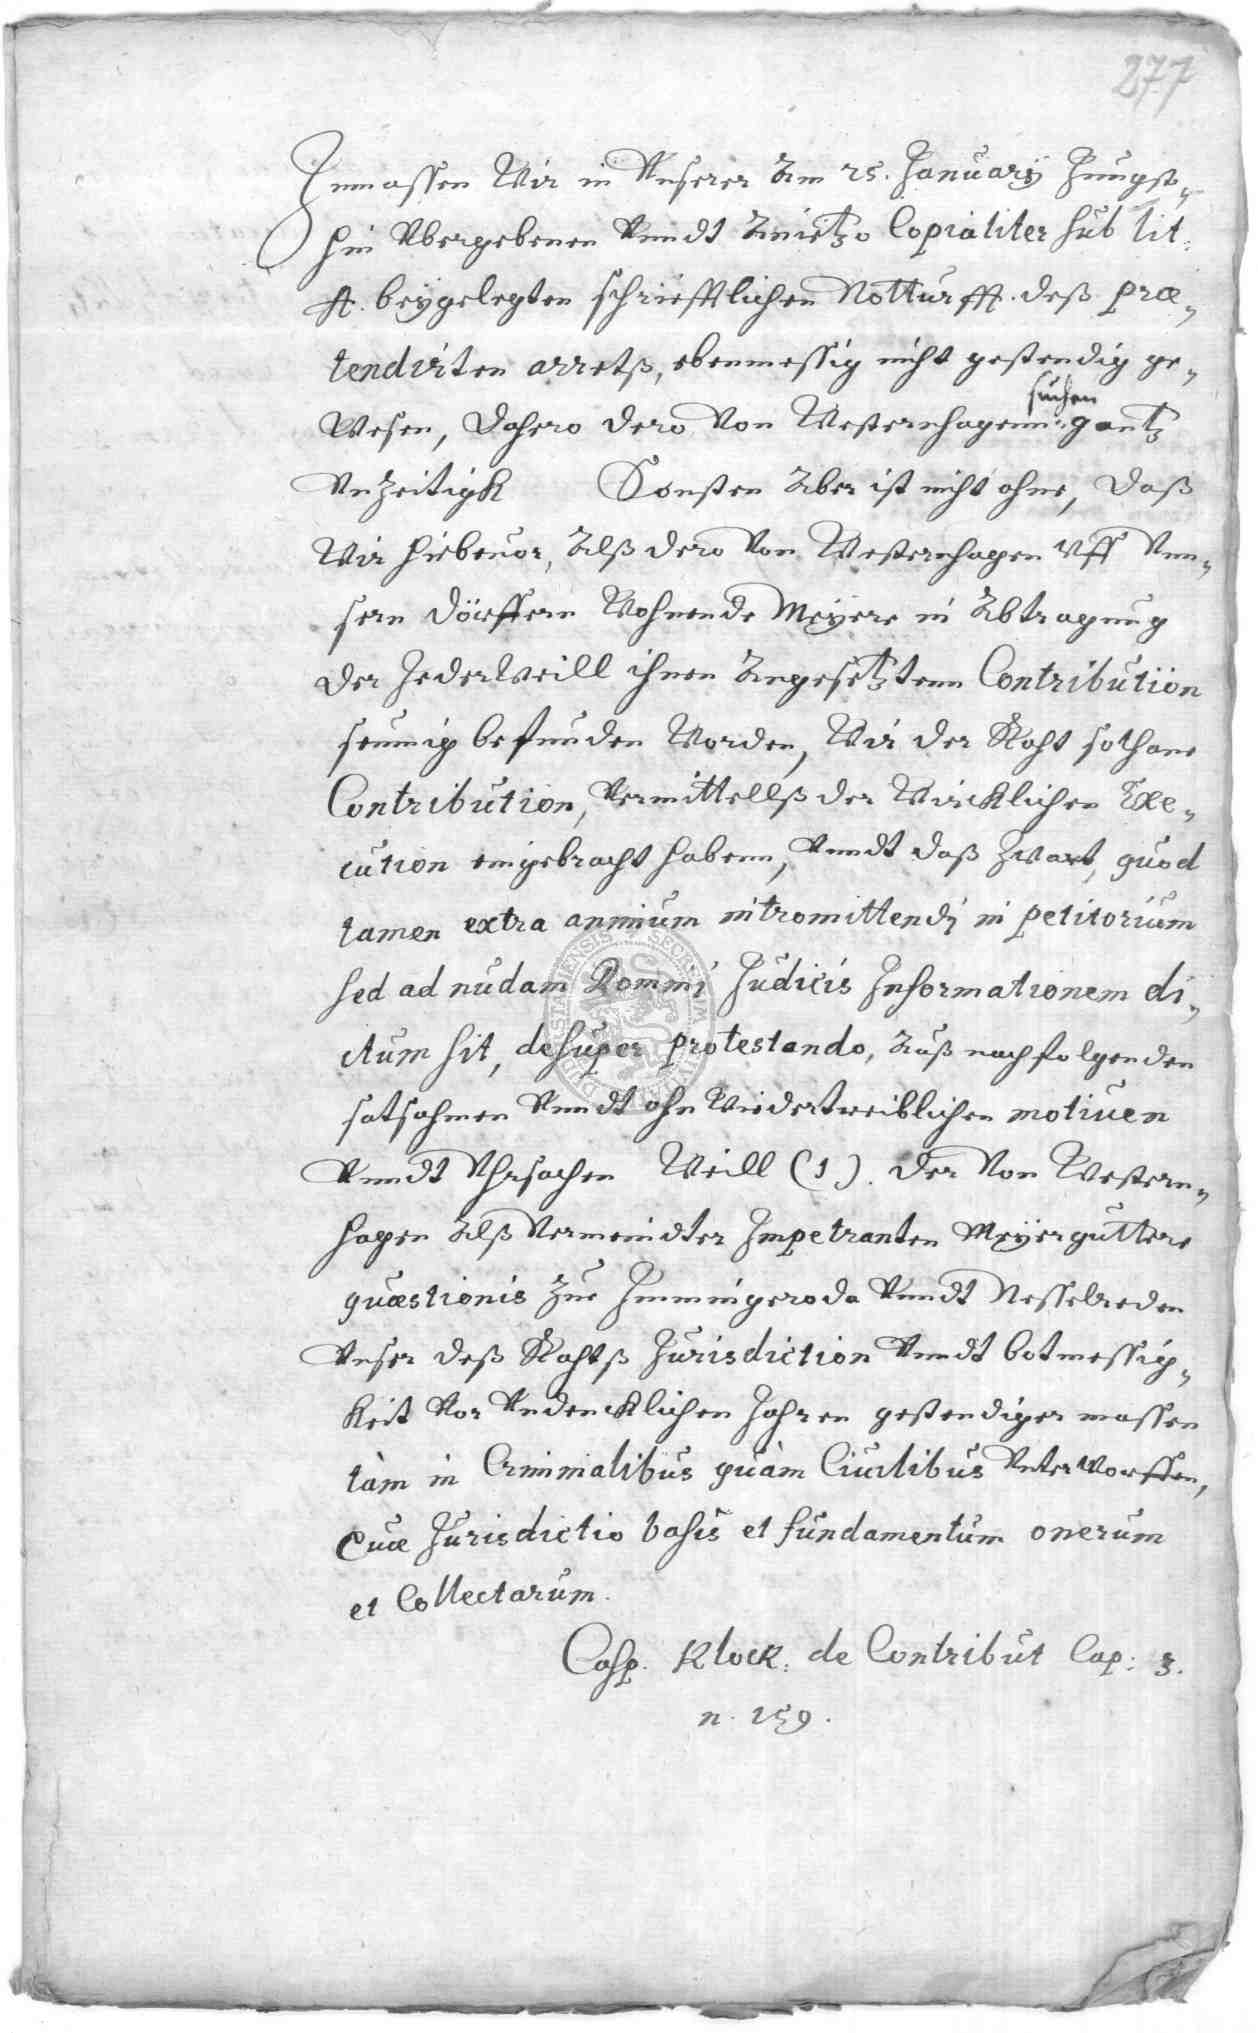 277
Inmassen Wir in Unserer Am 25. January Jüngst-
hin Ubergebenen Unndt Anietzo Copialiter sub lit:
A. beygelegten schriefftlichen Notturfft. deß præ-
tendirten arrests, ebenmessig nicht gestendig ge-
Wesen, Dahero dero Von Westernhagenn suchen gantz
UnZeitigk Sonsten Aber ist nicht ohne, Daß
Wir hiebeuor, Alß dero Von Westernhagen Uff Unn-
sern Dörffern Wohnende Meyere in Abtragung
der JederWeill ihnen Angesetztenn Contribution
seumig befunden Worden, Wir der Raht sothane
Contribution, Vermittellß der Wircklichen Exe-
cution eingebracht habenn, Unndt daß Zwart, quod
tamen extra animum intromittendi in petitorium
sed ad nudam Domini Judicis Informationem di-
ctum sit, desuper protestando, Auß nachfolgenden
satsahmen Unndt ohn Wiedertreiblichen motiuen
Unndt Uhrsachen Weill (1). der Von Western-
hagen Alß Vermeindter Impetranten Meyergüttere
quæstionis Zue Immingeroda Unndt Nesselreden
Unser deß Rahtß Jurisdiction Unndt botmessig-
keit Vor Undencklichen Jahren gestendiger massen
tàm in Criminalibus quàm Ciuilibus UnterWorffen,
Quæ Jurisdictio basis et fundamentum onerum
et Collectarum.
Casp. Klock: de Contribut Cap: 3.
n. 159.